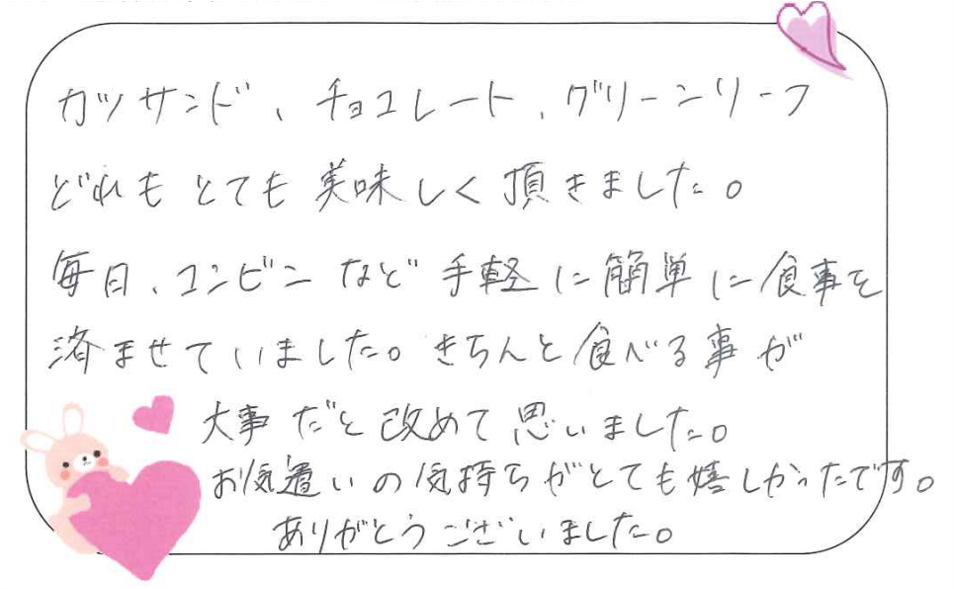 カツサンド、チョコレート、グリーンリーフ
どれもとても美味しく頂きました。
毎日、コンビニなど手軽に簡単に食事を
済ませていました。きちんと食べる事が
大事だと改めて思いました。
お気遣いの気持ちがとても嬉しかったです。
ありがとうございました。